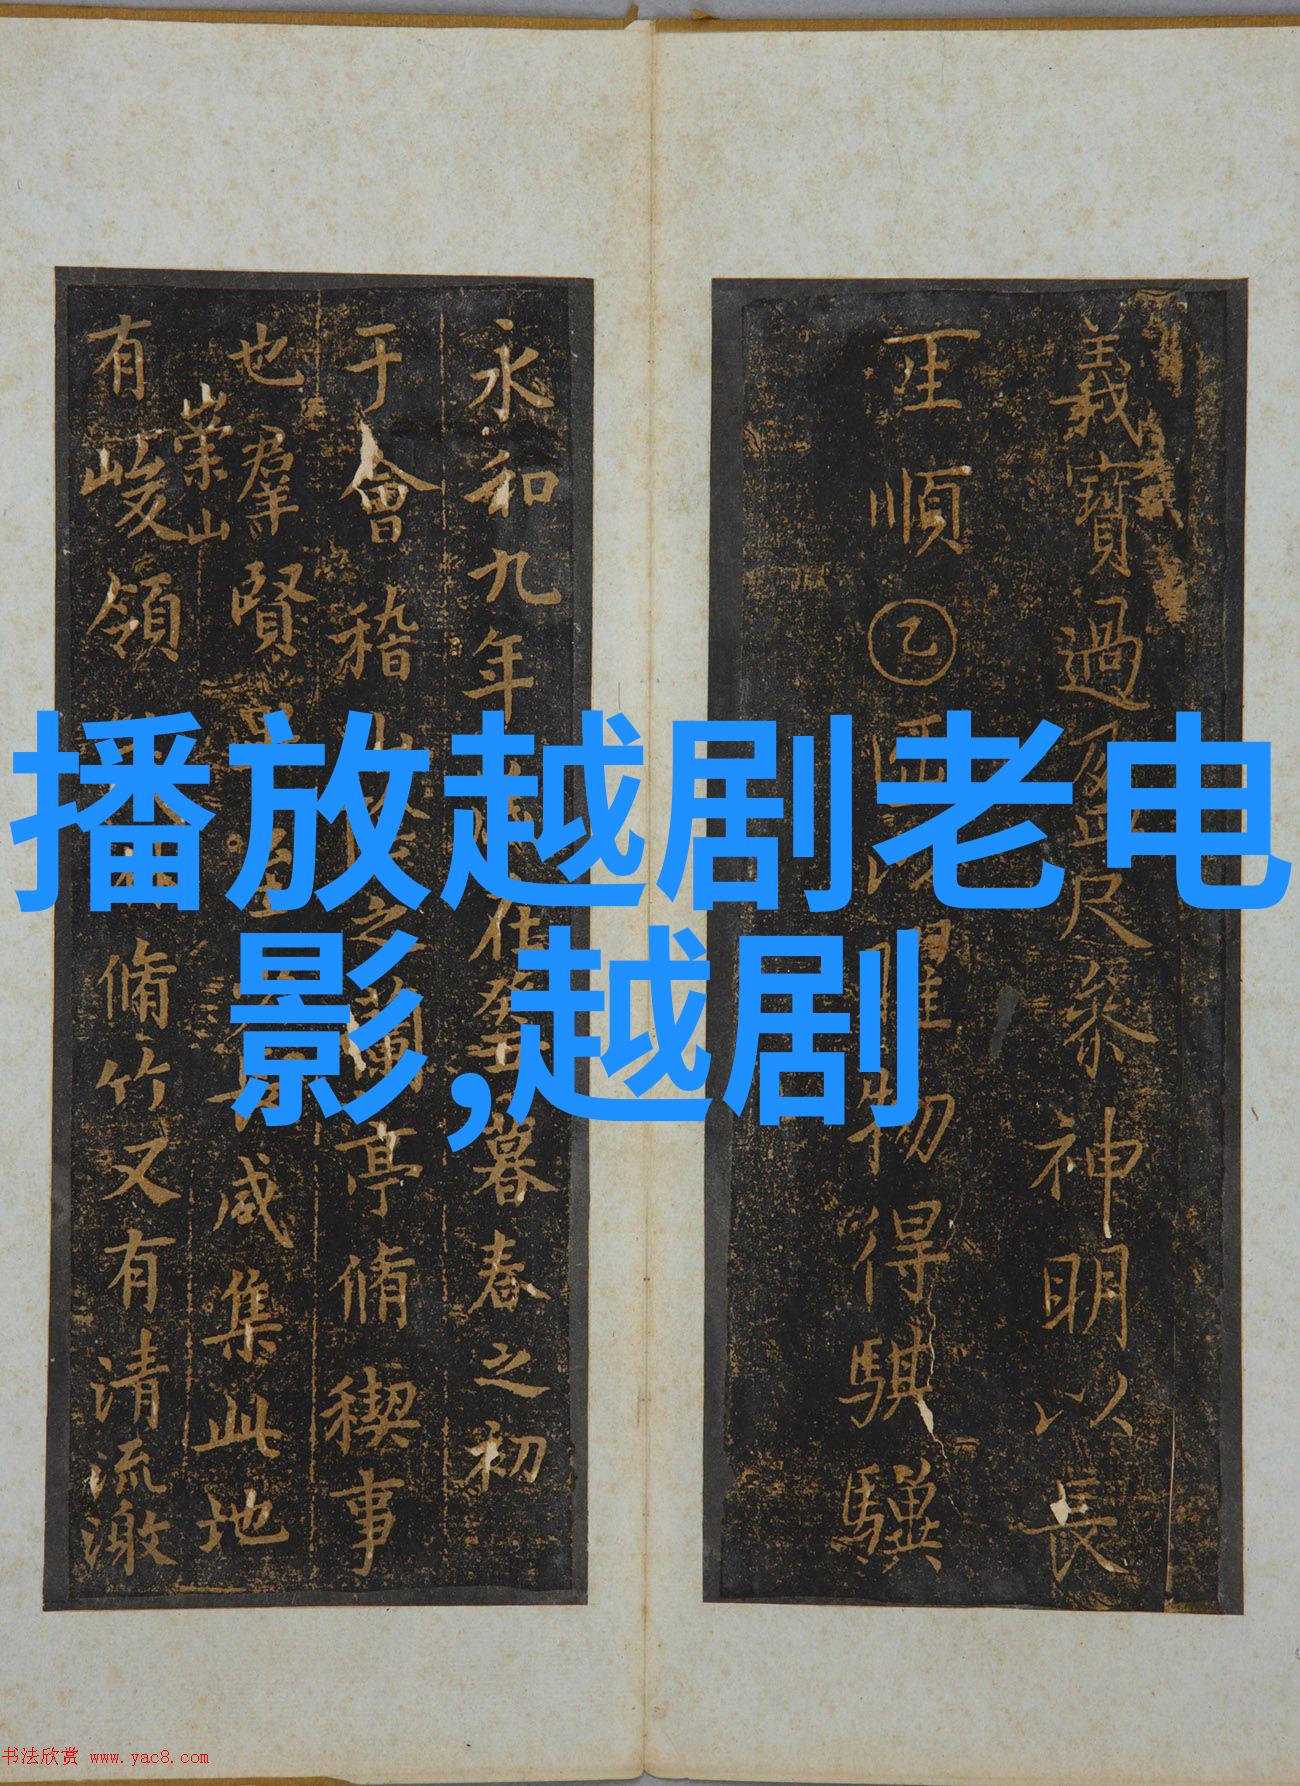 播放越剧老电
影,越剧
義寶過
尺 神明以長
王順㊁
物得騏驥
永和九年
在癸丑暮春之初
于會稽
之蘭亭脩禊事
也羣賢
咸集此地
崇山
有峻領
脩竹又有清流激
书法欣赏 www.yac8.com